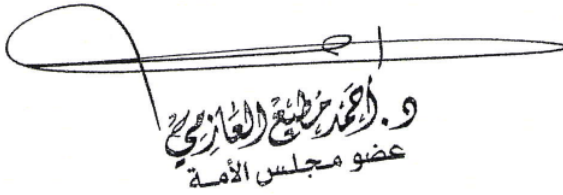 د. أحمد مطيع العازمي
عضو مجلس الأمة